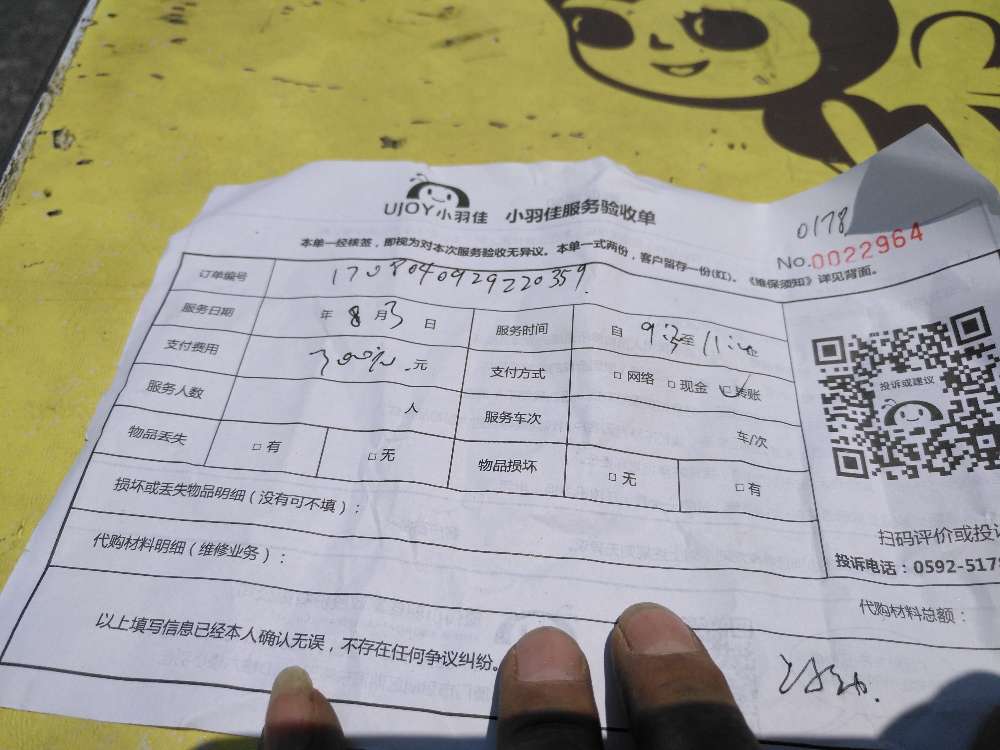 UJOY小羽佳 小羽佳服务验收单
0178
No.0022964
本单一经核签，即视为对本次服务验收无异议。本单一式两份，客户留存一份(红)。《维保须知》详见背面。
订单编号 1708040929220359
服务日期 年 8 月 3 日 服务时间 自 至
支付费用 元 支付方式 □ 网络 □ 现金 □ 转账
服务人数 人 服务车次 车/次
物品丢失 □ 有 □ 无 物品损坏 □ 无 □ 有
投诉或建议
损坏或丢失物品明细（没有可不填）：
代购材料明细（维修业务）：
扫码评价或投
投诉电话：0592-517
代购材料总额：
以上填写信息已经本人确认无误，不存在任何争议纠纷。